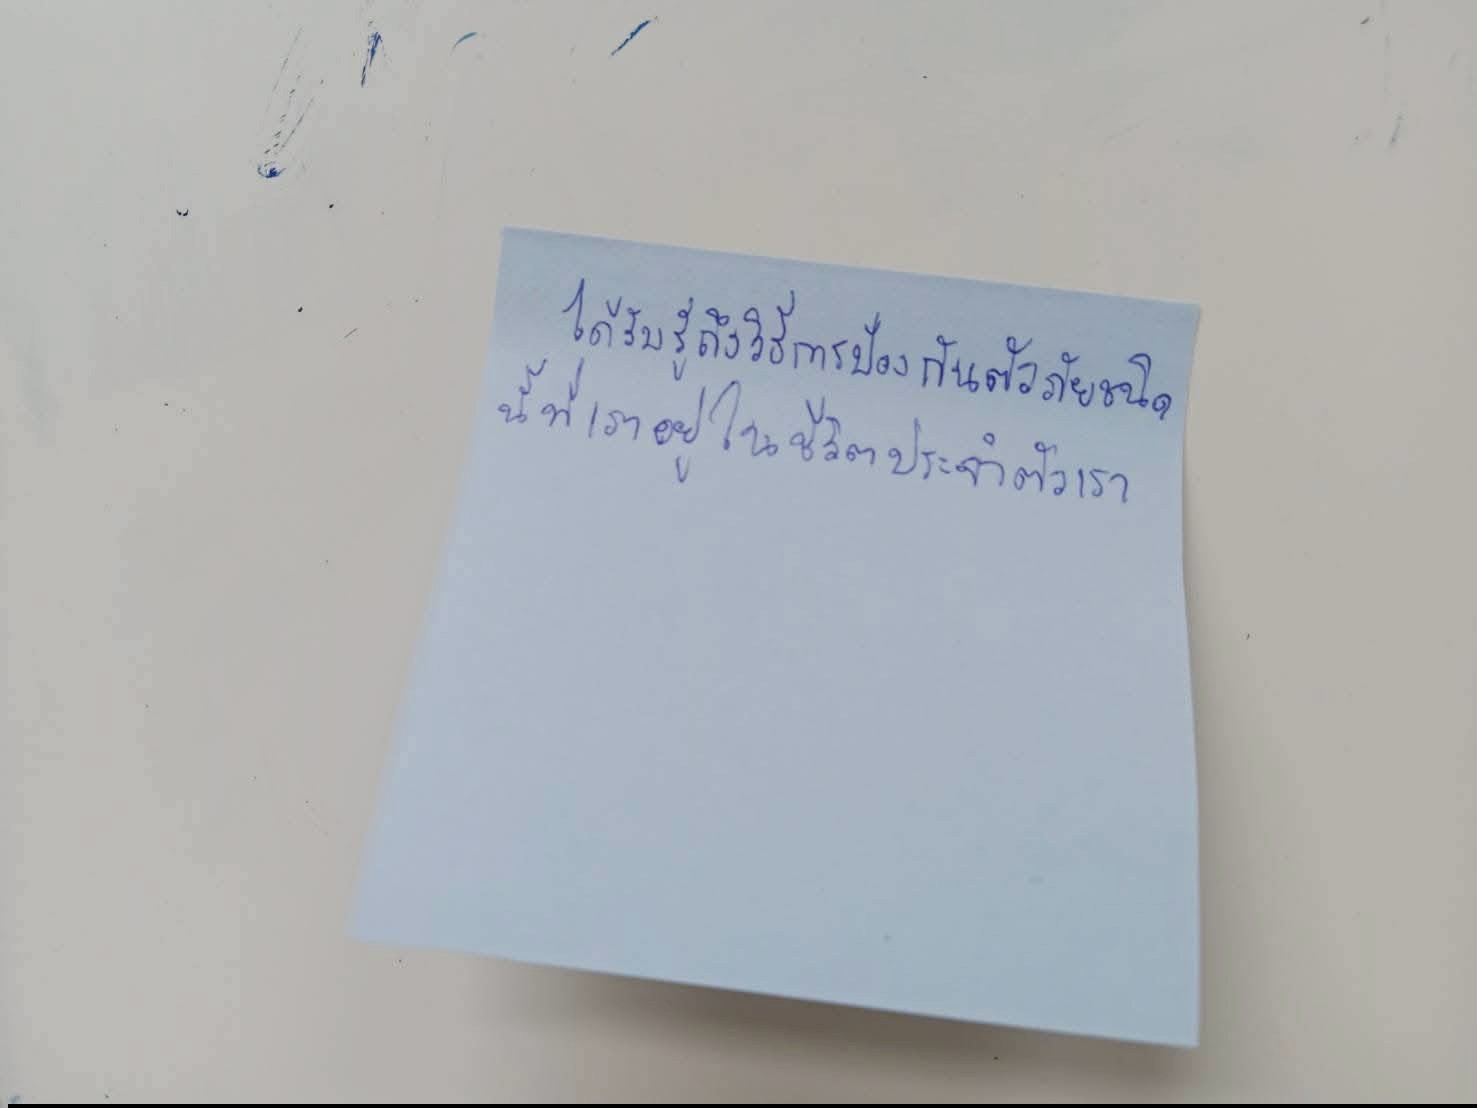 ได้รับรู้ถึงวิธีการป้องกันตัวภัยชนิด
นี้ที่เราอยู่ในชีวิตประจำตัวเรา